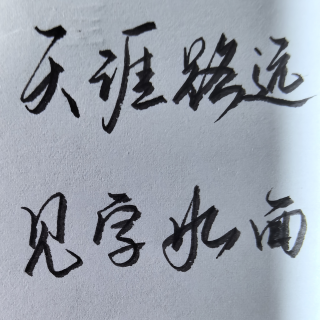 天涯路远
见字如面